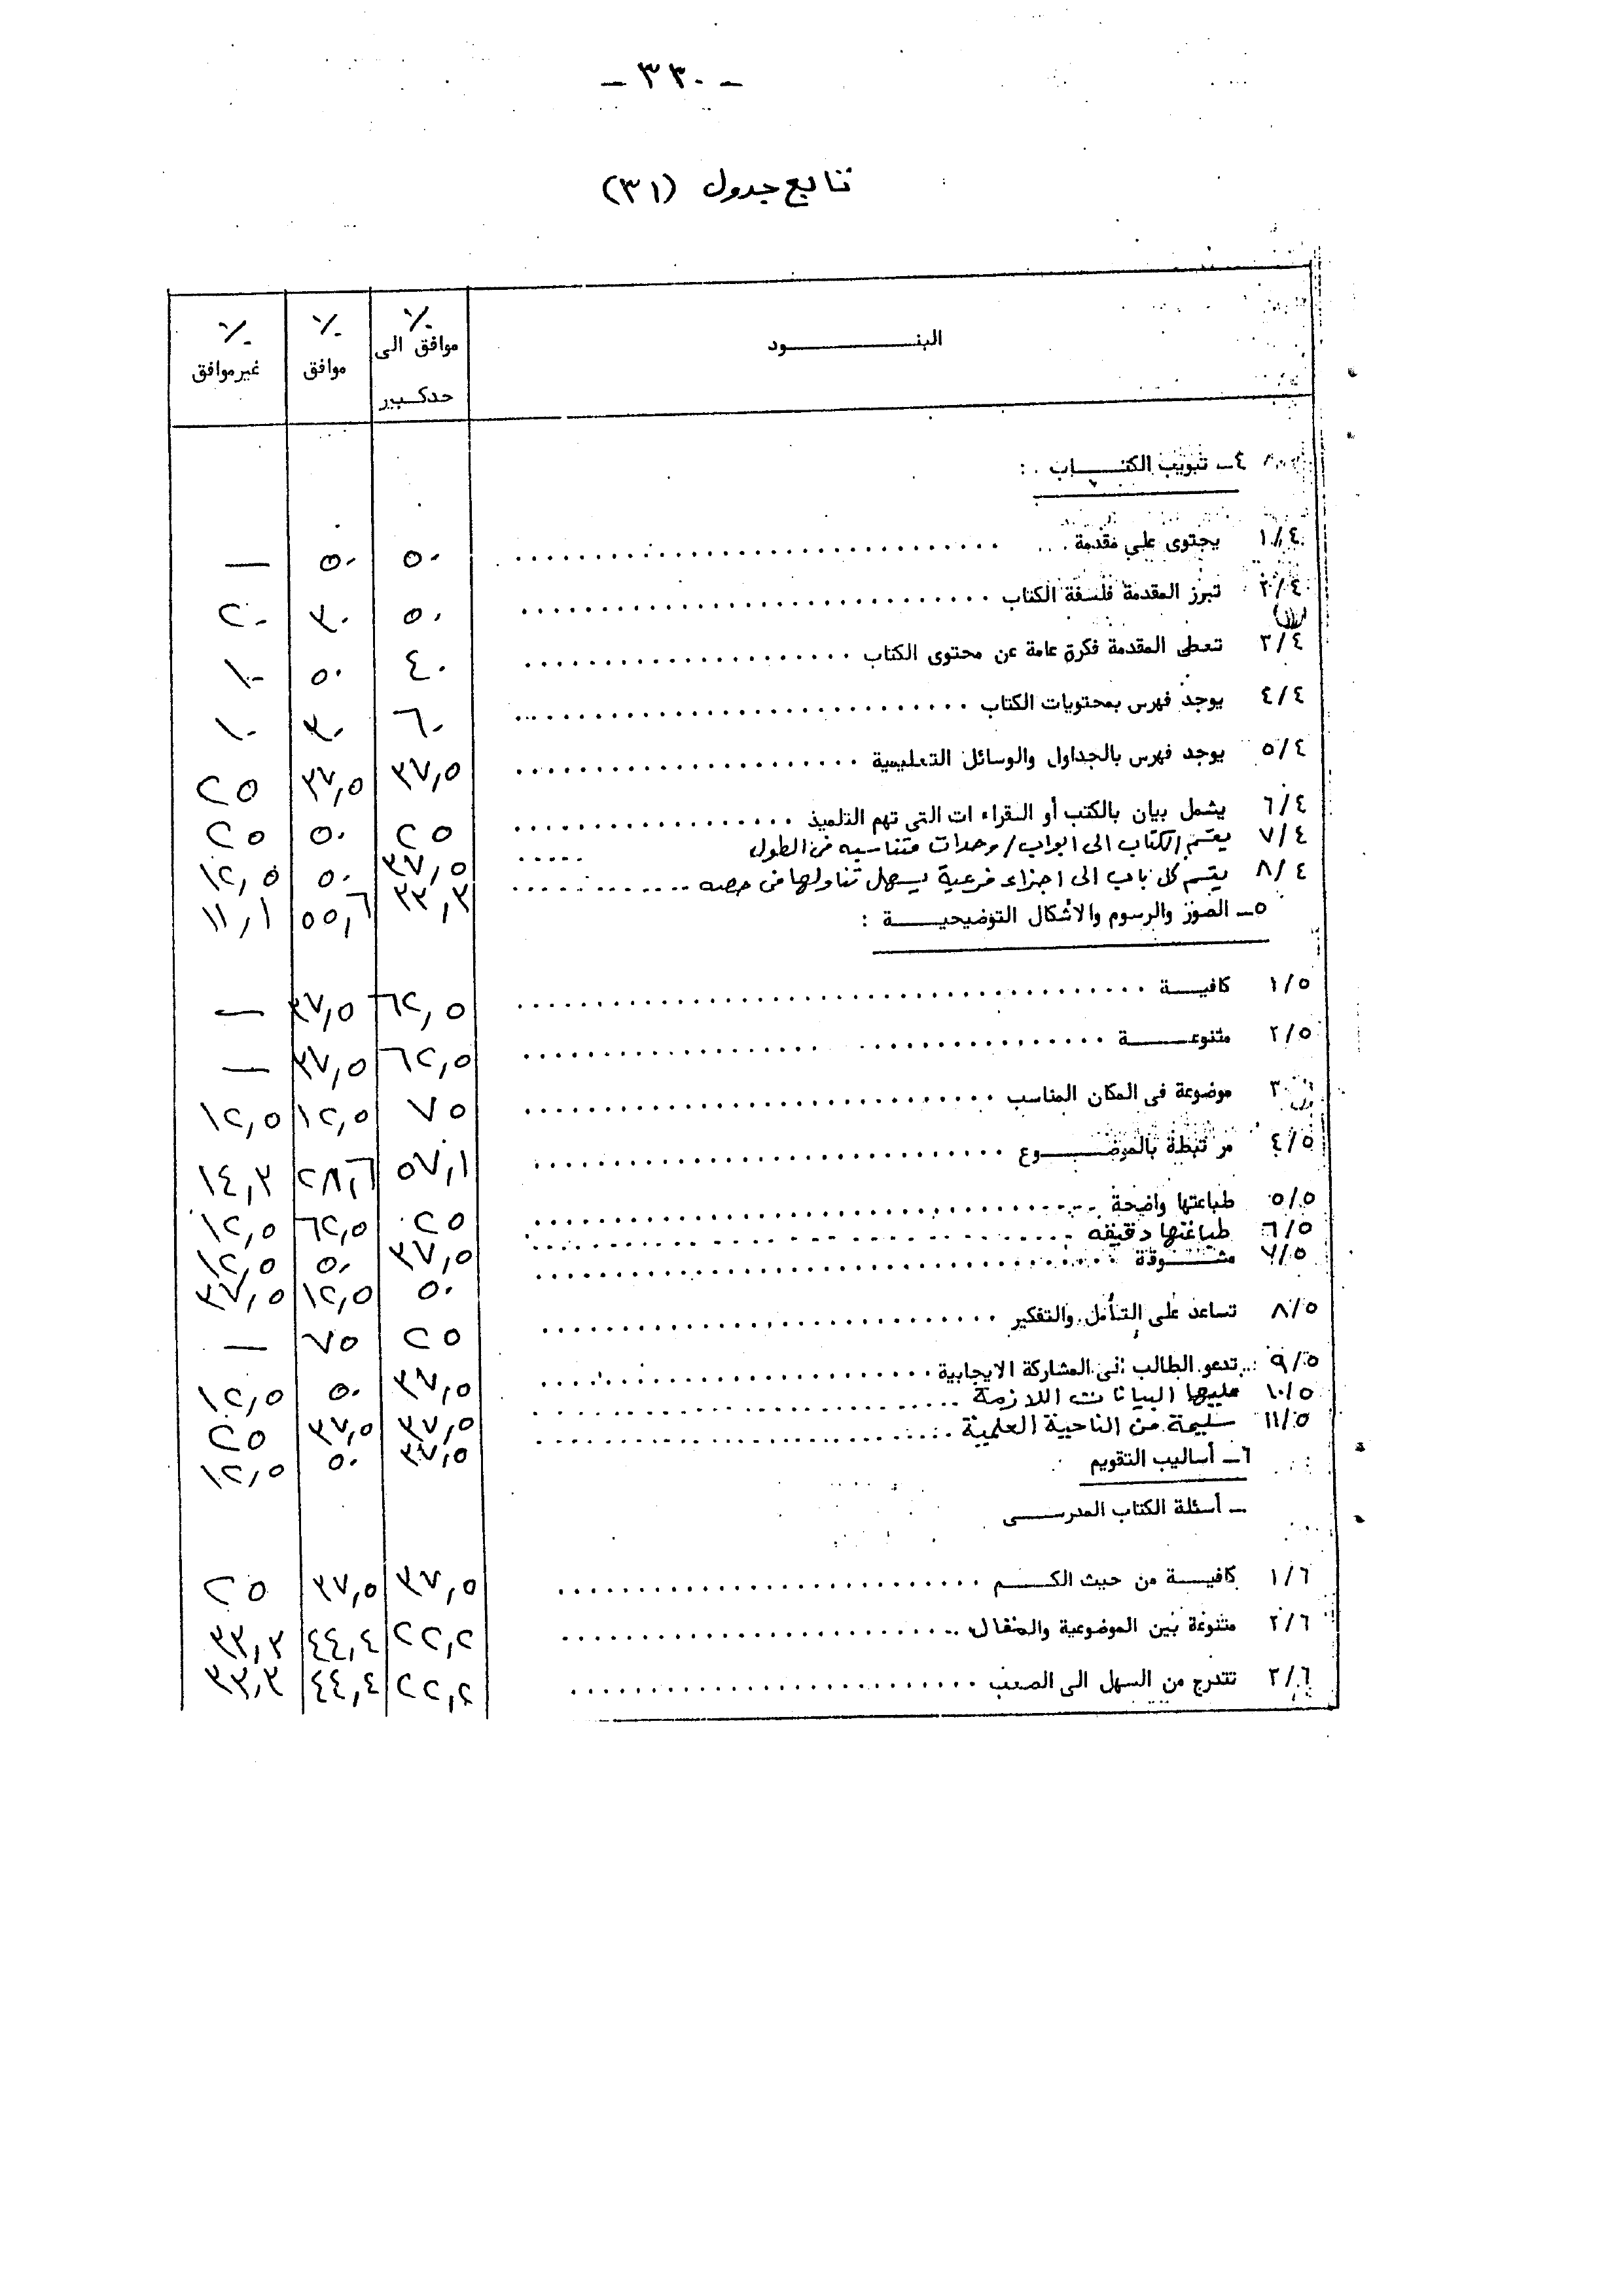 - ٣٣٠ -
تابع جدول (٣١)
البنــــــود ٪ موافق الى حدكبير ٪ موافق ٪ غيرموافق
٤ـ تبويب الكتــــاب :
١/٤ يحتوى على مقدمة ٥٠ ٥٠ —
٢/٤ تبرز المقدمة فلسفة الكتاب ٥٠ ٣٠ ٢٠
٣/٤ تعطى المقدمة فكرة عامة عن محتوى الكتاب ٤٠ ٥٠ ١٠
٤/٤ يوجد فهرس بمحتويات الكتاب ٦٠ ٣٠ ١٠
٥/٤ يوجد فهرس بالجداول والوسائل التعليمية ٣٧,٥ ٣٧,٥ ٢٥
٦/٤ يشمل بيان بالكتب أو القراءات التى تهم التلميذ ٢٥ ٥٠ ٢٥
٧/٤ يقسم الكتاب الى ابواب/وحدات متناسبه فى الطول ٣٧,٥ ٥٠ ١٢,٥
٨/٤ يقسم كل باب الى اجزاء فرعية يسهل تناولها فى حصه ٣٣,٣ ٥٥,٦ ١١,١
٥ـ الصور والرسوم والأشكال التوضيحيــــة :
١/٥ كافيـــة ٦٢,٥ ٣٧,٥ —
٢/٥ متنوعــــة ٦٢,٥ ٣٧,٥ —
٣ موضوعة فى المكان المناسب ٧٥ ١٢,٥ ١٢,٥
٤/٥ مرتبطة بالموضــــوع ٥٧,١ ٢٨,٦ ١٤,٣
٥/٥ طباعتها واضحة ٢٥ ٦٢,٥ ١٢,٥
٦/٥ طباعتها دقيقه ٣٧,٥ ٥٠ ١٢,٥
٧/٥ مشـــوقة ٥٠ ١٢,٥ ٣٧,٥
٨/٥ تساعد على التأمل والتفكير ٢٥ ٧٥ —
٩/٥ تدعو الطالب الى المشاركة الايجابية ٣٧,٥ ٥٠ ١٢,٥
١٠/٥ عليها البيانات اللازمة ٣٧,٥ ٣٧,٥ ٢٥
١١/٥ سليمة من الناحية العلمية ٣٧,٥ ٥٠ ١٢,٥
٦ـ أساليب التقويم
ـ أسئلة الكتاب المدرســـى
١/٦ كافيـــة من حيث الكـــم ٣٧,٥ ٣٧,٥ ٢٥
٢/٦ متنوعة بين الموضوعية والمقال ٢٢,٢ ٤٤,٤ ٣٣,٣
٣/٦ تتدرج من السهل الى الصعب ٢٢,٢ ٤٤,٤ ٣٣,٣